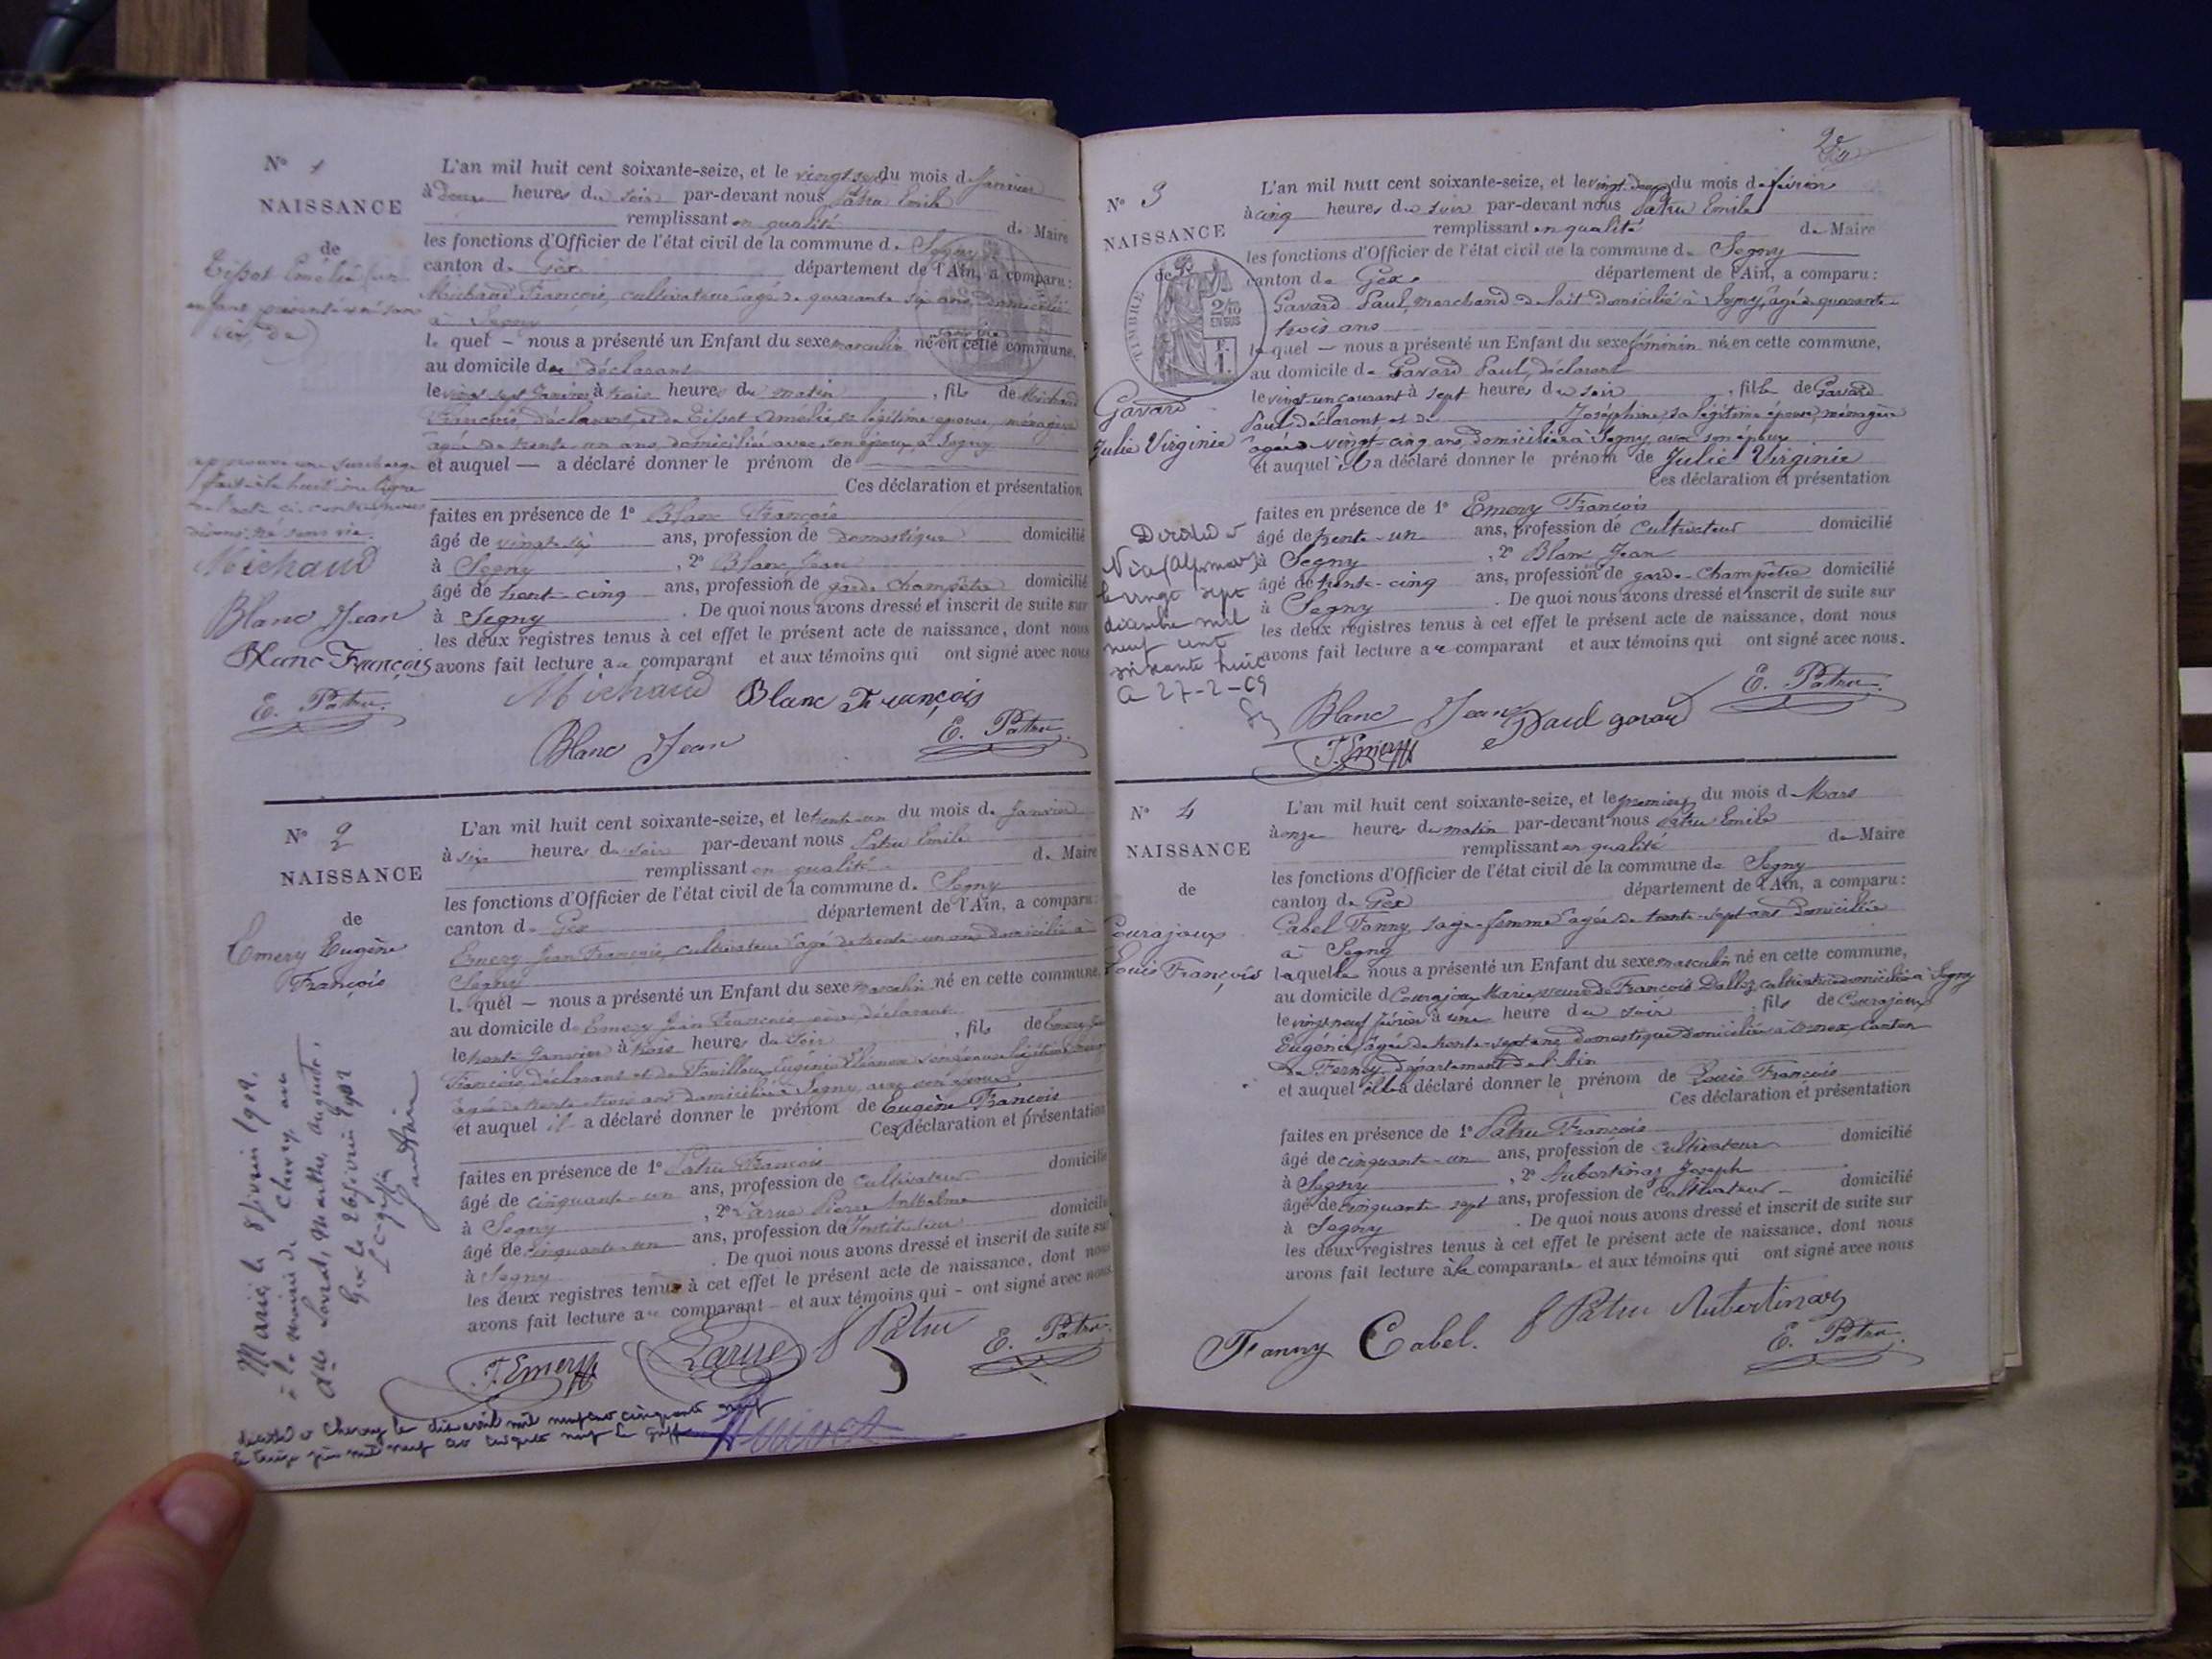 N° 1
NAISSANCE
de
Tissot Emélie (un
enfant présenté né sans
vie, de)
L'an mil huit cent soixante-seize, et le vingt sept du mois de Janvier
à heures du soir par-devant nous Patru Emile
remplissant en qualité de Maire
les fonctions d'Officier de l'état civil de la commune de Segny
canton de Gex département de l'Ain, a comparu:
Michaud François, cultivateur âgé de quarante six ans, domicilié
à Segny
lequel — nous a présenté un Enfant du sexe masculin né en cette commune,
au domicile du déclarant
le vingt sept Janvier à trois heures du matin, fils de Michaud
François, déclarant, et de Tissot Amélie, sa légitime épouse, ménagère
âgée de trente un ans, domiciliée avec son époux à Segny
et auquel — a déclaré donner le prénom de
Ces déclaration et présentation
faites en présence de 1° Blanc François
âgé de vingt six ans, profession de domestique domicilié
à Segny, 2° Blanc Jean
âgé de trente-cinq ans, profession de garde champêtre domicilié
à Segny. De quoi nous avons dressé et inscrit de suite sur
les deux registres tenus à cet effet le présent acte de naissance, dont nous
avons fait lecture au comparant et aux témoins qui ont signé avec nous
approuvé une surcharge
fait à la huitième ligne
de l'acte ci-contre, nous
disons: né sans vie.
Michaud
Blanc Jean
Blanc François
E. Patru.
Michaud Blanc François
Blanc Jean E. Patru.
N° 2
NAISSANCE
de
Emery Eugène
François
L'an mil huit cent soixante-seize, et le trente-un du mois de Janvier
à six heures du soir par-devant nous Patru Emile
remplissant en qualité de Maire
les fonctions d'Officier de l'état civil de la commune de Segny
canton de Gex département de l'Ain, a comparu:
Emery Jean François, cultivateur âgé de trente un ans domicilié à
Segny
lequel — nous a présenté un Enfant du sexe masculin né en cette commune,
au domicile de Emery Jean François père, déclarant
le trente Janvier à trois heures du soir, fils de Emery Jean
François, déclarant et de Eugénie Eléonore son épouse légitime
âgée de trente trois ans domiciliée à Segny, avec son époux
et auquel il a déclaré donner le prénom de Eugène François
Ces déclaration et présentation
faites en présence de 1° Patru François
âgé de cinquante-un ans, profession de cultivateur domicilié
à Segny, 2° Larue Pierre Anthelme
âgé de cinquante-un ans, profession de Instituteur domicilié
à Segny. De quoi nous avons dressé et inscrit de suite sur
les deux registres tenus à cet effet le présent acte de naissance, dont nous
avons fait lecture au comparant – et aux témoins qui – ont signé avec nous.
Marié le 8 février 1902,
à la mairie de Chevry, avec
Dlle Marthe, Augusta.
Gex le 26 février 1902
Le Greffier
F. Emery Larue F Patru E. Patru.
décédé à Chevry le dix avril mil neuf cent cinquante neuf
le treize juin mil neuf cent cinquante neuf Le Greffier
2e
N° 3
NAISSANCE
de
TIMBRE
2/10
EN SUS
F.
1.
Gavard
Julie Virginie
L'an mil huit cent soixante-seize, et le vingt-deux du mois de février
à cinq heures du soir par-devant nous Patru Emile
remplissant en qualité de Maire
les fonctions d'Officier de l'état civil de la commune de Segny
canton de Gex département de l'Ain, a comparu:
Gavard Paul, marchand de lait domicilié à Segny, âgé de quarante-
trois ans
lequel — nous a présenté un Enfant du sexe féminin né en cette commune,
au domicile de Gavard Paul, déclarant
le vingt-un courant à sept heures du soir, fille de Gavard
Paul, déclarant et de Joséphine, sa légitime épouse, ménagère
âgée de vingt-cinq ans, domiciliée à Segny, avec son époux
et auquel il a déclaré donner le prénom de Julie Virginie
Ces déclaration et présentation
faites en présence de 1° Emery François
âgé de trente-un ans, profession de Cultivateur domicilié
à Segny, 2° Blanc Jean
âgé de trente-cinq ans, profession de garde-Champêtre domicilié
à Segny. De quoi nous avons dressé et inscrit de suite sur
les deux registres tenus à cet effet le présent acte de naissance, dont nous
avons fait lecture au comparant et aux témoins qui ont signé avec nous.
Décédée à
Nice (Alpes mar)
le vingt sept
décembre mil
neuf cent
soixante huit
a 27-2-69
Blanc Jean Paul gavard E. Patru.
F. Emery
N° 4
NAISSANCE
de
Courajoux
Louis François
L'an mil huit cent soixante-seize, et le premier du mois de Mars
à onze heures du matin par-devant nous Patru Emile
remplissant en qualité de Maire
les fonctions d'Officier de l'état civil de la commune de Segny
canton de Gex département de l'Ain, a comparu:
Cabel Fanny, sage-femme âgée de trente-sept ans domiciliée
à Segny
laquelle nous a présenté un Enfant du sexe masculin né en cette commune,
au domicile de Courajoux Marie veuve de François Dalloz, cultivatrice domiciliée à Segny
le vingt neuf février à une heure du soir, fils de Courajoux
Eugénie, âgée de trente-sept ans, domestique domiciliée à Ornex, Canton
de Ferney, département de l'Ain
et auquel elle a déclaré donner le prénom de Louis François
Ces déclaration et présentation
faites en présence de 1° Patru François
âgé de cinquante-un ans, profession de cultivateur domicilié
à Segny, 2° Aubertinaz Joseph
âgé de cinquante sept ans, profession de cultivateur domicilié
à Segny. De quoi nous avons dressé et inscrit de suite sur
les deux registres tenus à cet effet le présent acte de naissance, dont nous
avons fait lecture à la comparante et aux témoins qui ont signé avec nous
Fanny Cabel. F Patru Aubertinaz
E. Patru.